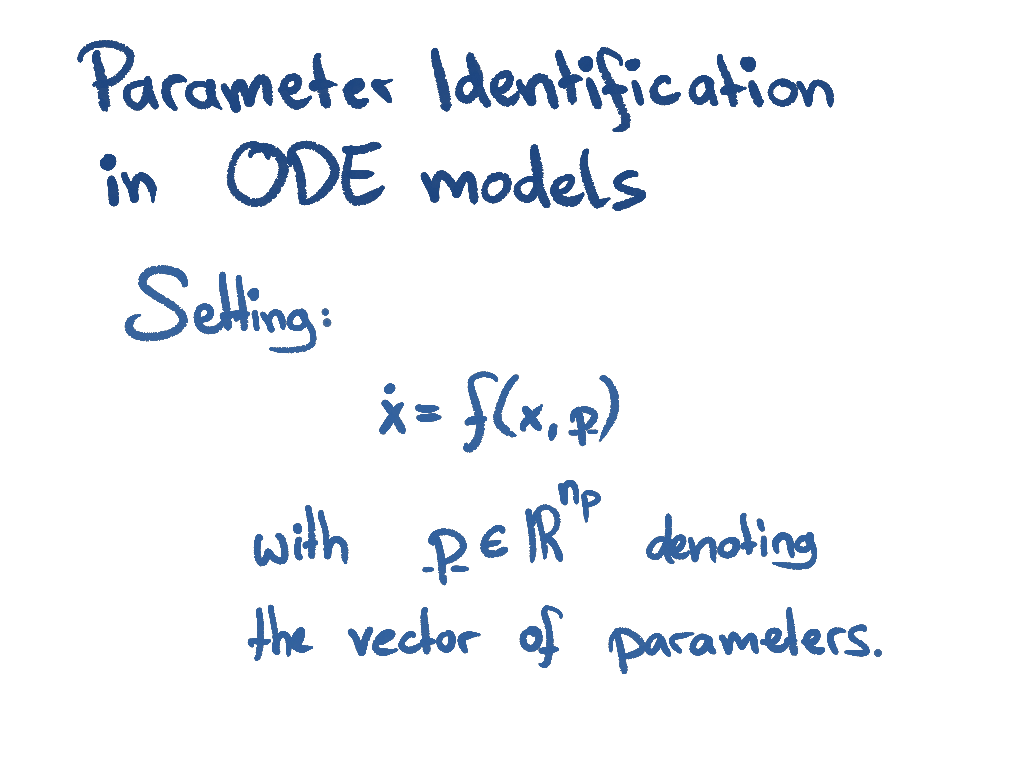 Parameter Identification
in ODE models
Setting:
ẋ = f(x, p̲)
with p̲ ∈ ℝ^{n_p} denoting
the vector of parameters.